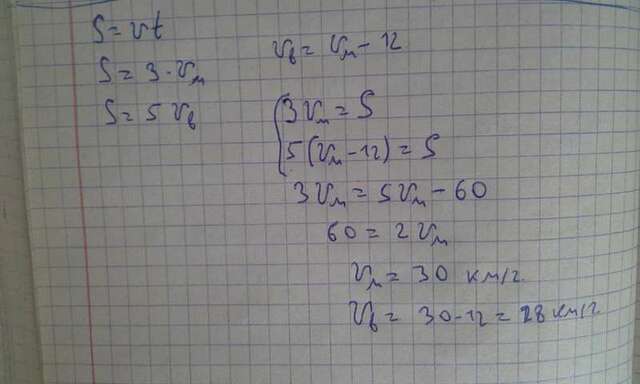 S = vt
S = 3 · vм
S = 5 vв
vв = vм - 12
{ 3vм = S
5(vм - 12) = S
3vм = 5vм - 60
60 = 2vм
vм = 30 км/г.
vв = 30 - 12 = 18 км/г.